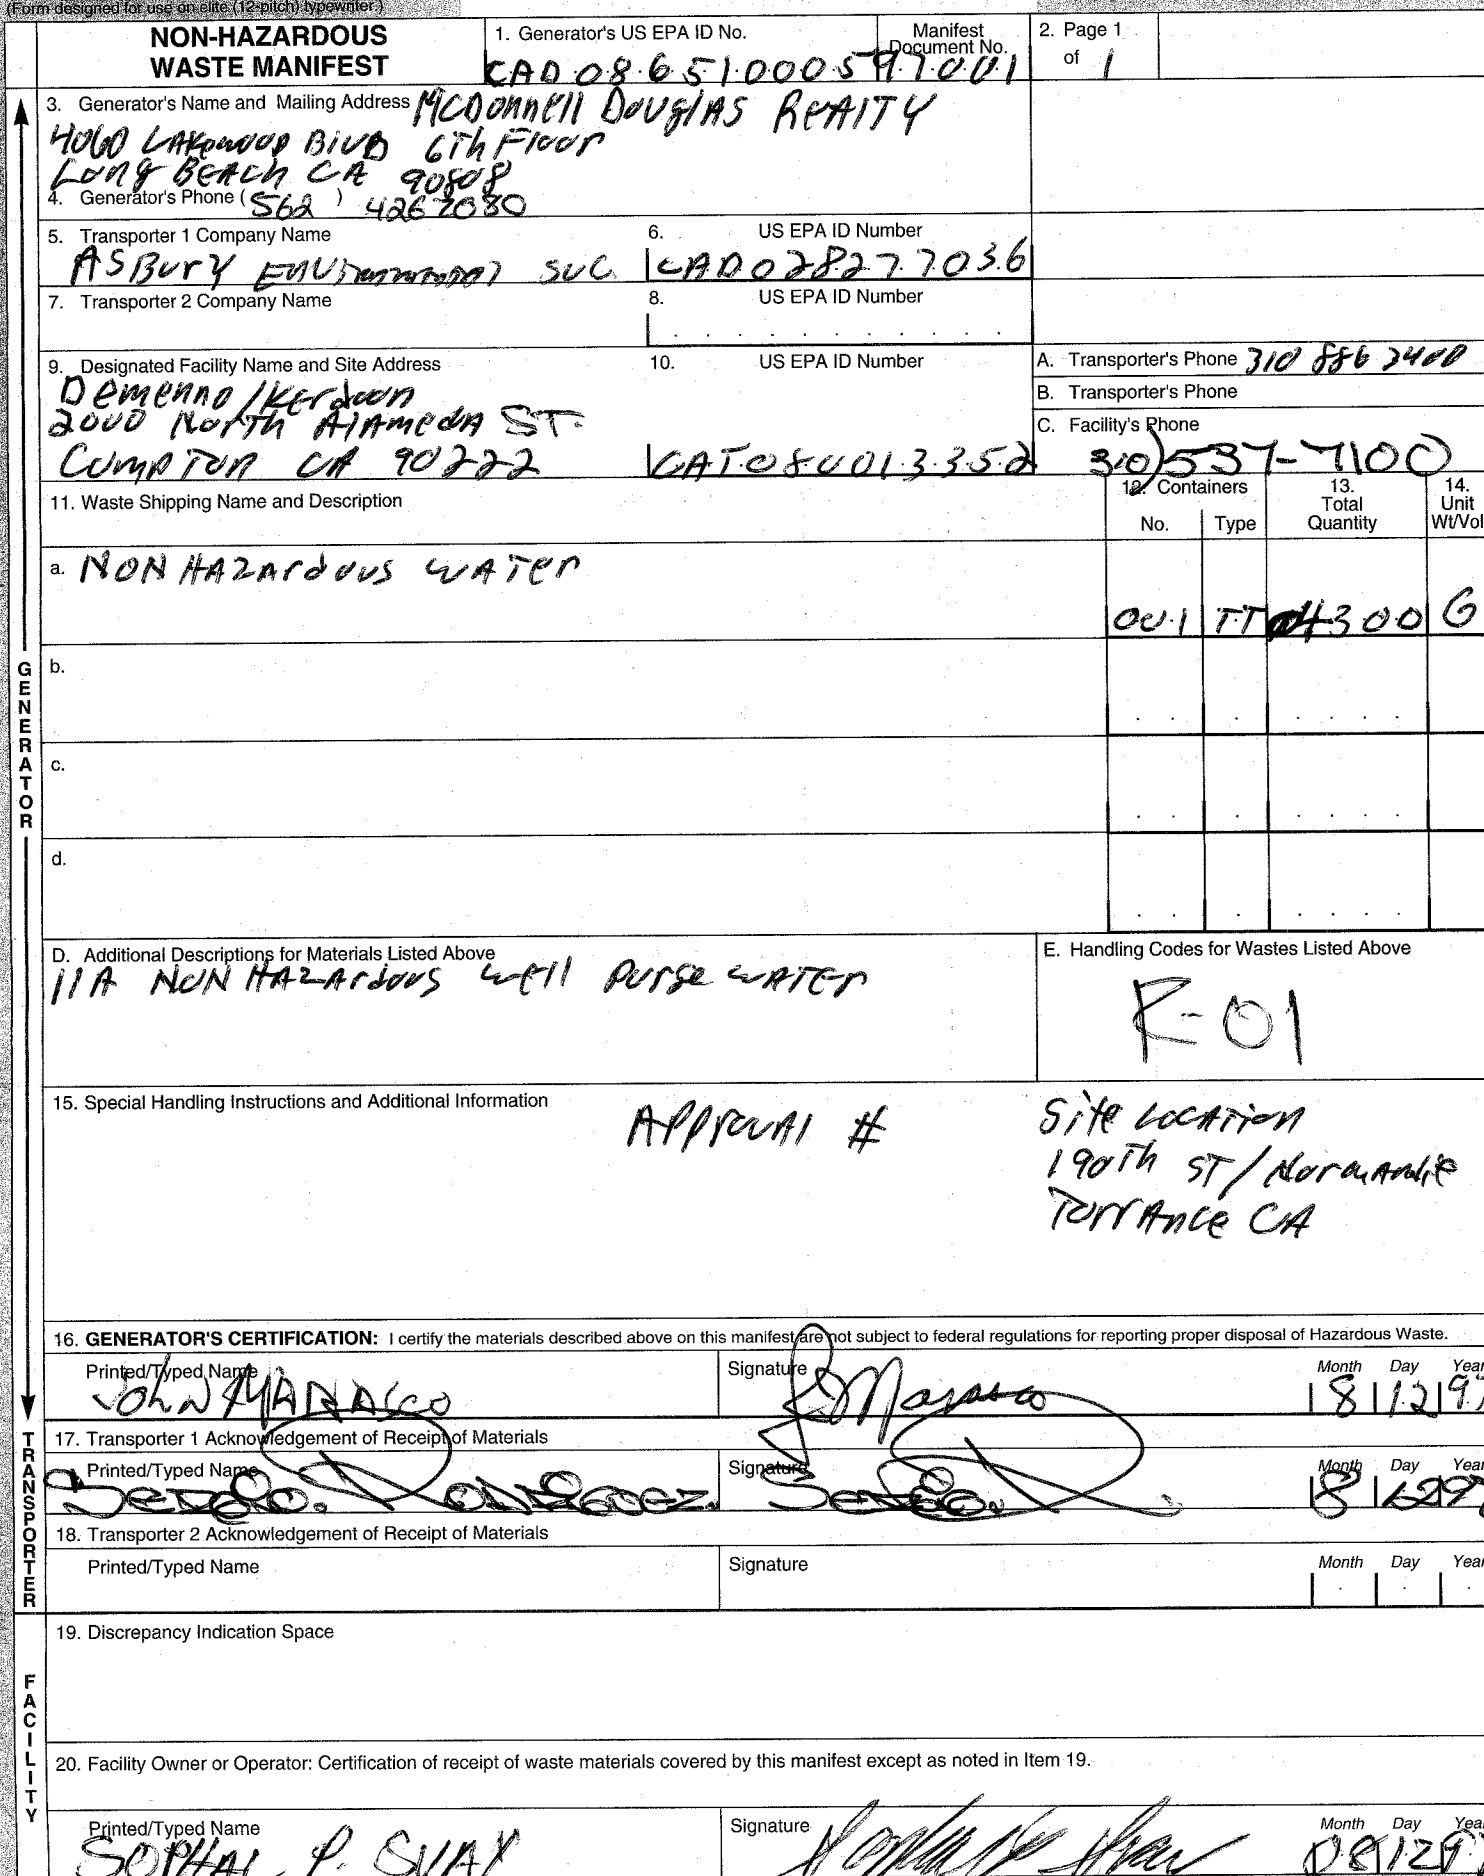 (Form designed for use on elite (12-pitch) typewriter.)
NON-HAZARDOUS
WASTE MANIFEST
1. Generator's US EPA ID No.
CAD086510005
Manifest
Document No.
97001
2. Page 1
of 1
3. Generator's Name and Mailing Address McDonnell Douglas Realty
4060 Lakewood Blvd 6th Floor
Long Beach CA 90808
4. Generator's Phone (562) 4267080
5. Transporter 1 Company Name
Asbury Environmental Svc
6. US EPA ID Number
CAD028277036
7. Transporter 2 Company Name
8. US EPA ID Number
9. Designated Facility Name and Site Address
Demenno/Kerdoon
2000 North Alameda ST.
Compton CA 90222
10. US EPA ID Number
CAT080013352
A. Transporter's Phone 310 886 3400
B. Transporter's Phone
C. Facility's Phone
310) 537-7100
11. Waste Shipping Name and Description
12. Containers
No. Type
13.
Total
Quantity
14.
Unit
Wt/Vol
a. NON HAZArdous WATer
001 TT 4300 G
b.
c.
d.
D. Additional Descriptions for Materials Listed Above
11A NON HAZArdous well purge WATer
E. Handling Codes for Wastes Listed Above
R-01
15. Special Handling Instructions and Additional Information
Approval #
Site Location
190th ST/Normandie
Torrance CA
16. GENERATOR'S CERTIFICATION: I certify the materials described above on this manifest are not subject to federal regulations for reporting proper disposal of Hazardous Waste.
Printed/Typed Name
John Marasco
Signature
Marasco
Month Day Year
8 12 97
17. Transporter 1 Acknowledgement of Receipt of Materials
Printed/Typed Name
Sergio. Rodriguez.
Signature
Sergio. R.
Month Day Year
8
18. Transporter 2 Acknowledgement of Receipt of Materials
Printed/Typed Name
Signature
Month Day Year
19. Discrepancy Indication Space
20. Facility Owner or Operator: Certification of receipt of waste materials covered by this manifest except as noted in Item 19.
Printed/Typed Name
SOPHAL P.
Signature
Month Day Year
08 12 97
GENERATOR
TRANSPORTER
FACILITY